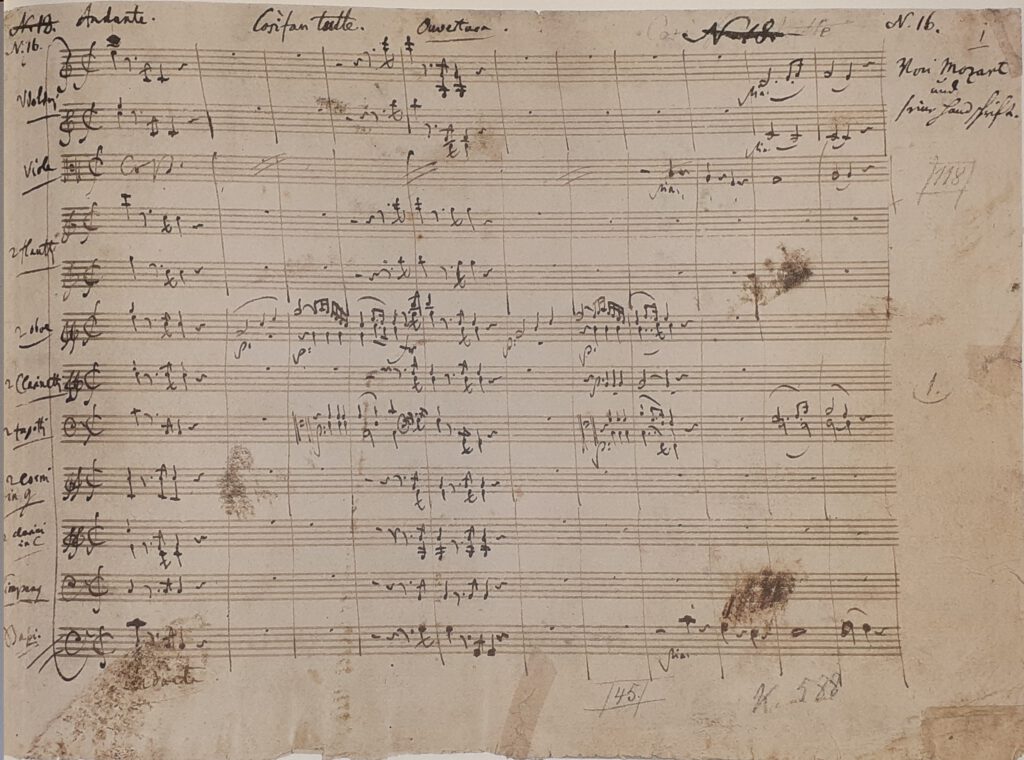 N. 18. Andante. Cosi fan tutte. Ouvertura. N 18. N. 16. 1
N. 16.
Von Mozart
und
seine Handschrift.
2 Violini
Viole
Col B.
[118]
2 flauti
2 oboe
p: p: p: p:
2 Clarinetti
p:
1.
2 fagotti
p: p:
2 corni
in g
2 clarini
in C
Timpany
Bassi.
pia:
Andante
[45.]
K. 588